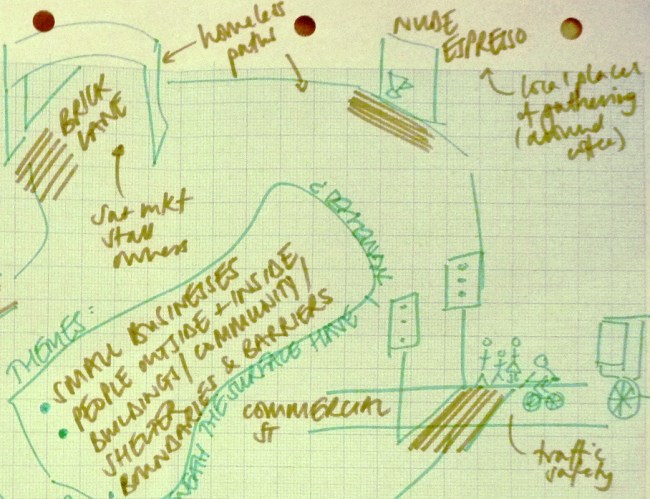 homeless
paths
NUDE
ESPRESSO
local places
of gathering
(around
coffee)
BRICK
LANE
sat mkt
stall
owners
THEMES:
SMALL BUSINESSES
PEOPLE OUTSIDE + INSIDE
BUILDINGS / COMMUNITY /
SHELTER
BOUNDARIES & BARRIERS
THE SURFACE HAVE
COMMERCIAL
ST
traffic
safety